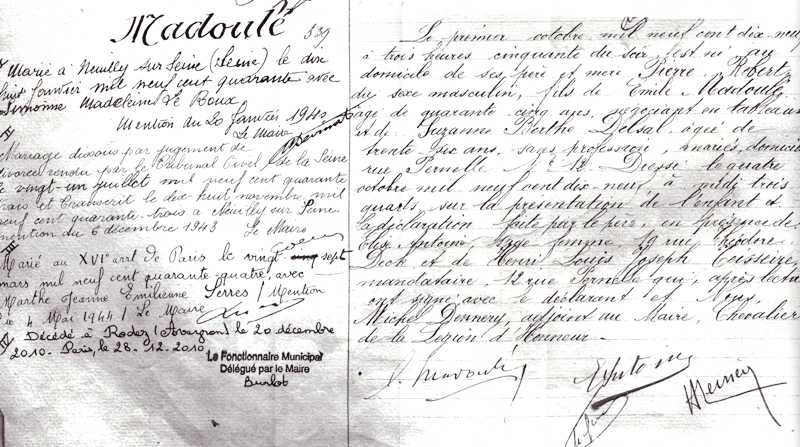 Madoulé
539
Marié à Neuilly sur Seine (Seine) le dix
huit janvier mil neuf cent quarante avec
Simonne Madeleine Le Boux
Mention du 20 Janvier 1940
Le Maire
Mariage dissous par jugement de
divorce rendu par le Tribunal Civil de la Seine
le vingt-un juillet mil neuf cent quarante
trois et transcrit le dix huit novembre mil
neuf cent quarante trois à Neuilly sur Seine
mention du 6 décembre 1943 Le Maire
Marié au XVIe arrt de Paris le vingt cinq sept
mars mil neuf cent quarante quatre, avec
Marthe Jeanne Emilienne Serres / Mention
le 4 Mai 1944 / Le Maire
Décédé à Rodez (Aveyron) le 20 décembre
2010. Paris, le 28.12.2010
Le Fonctionnaire Municipal
Délégué par le Maire
Burlot
Le premier octobre mil neuf cent dix-neuf
à trois heures cinquante du soir, est né au
domicile de ses père et mère, Pierre, Robert
du sexe masculin, fils de Emile Madoulé
âgé de quarante cinq ans, négociant en tableaux
et de Suzanne Berthe Delsal, âgée de
trente six ans, sans profession, mariés, domiciliés
rue Pernelle N° 12. Dressé le quatre
octobre mil neuf cent dix-neuf, à midi trois
quarts, sur la présentation de l'enfant et
la déclaration faite par le père, en présence de
Antoine, sage femme, 19 rue Théodore
Deck et de Henri Louis Joseph
mandataire, 12 rue Pernelle qui, après lecture
ont signé avec le déclarant et Nous,
Michel Dennery, adjoint au Maire, Chevalier
de la Légion d'Honneur.
Madoulé